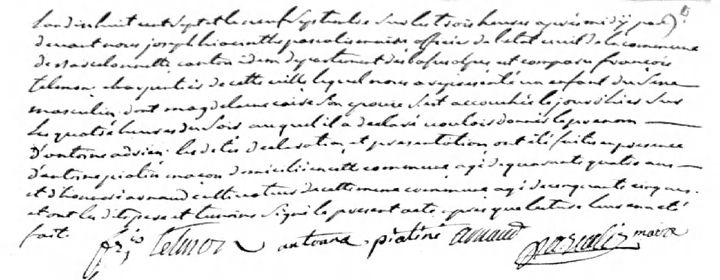 L'an dix huit cent sept et le neuf septembre sur les trois heures après midi par
devant nous joseph hiacinthe pascalis maire officier de l'etat civil de la commune
de Barcelonnette canton idem departement des basses alpes est comparu françois
telmon, charpentier de cette ville lequel nous a représenté un enfant du sexe
masculin, dont magdeleine caire son epouse s'est accouchée le jour d'hier sur
les quatre heures du soir auquel il a declaré vouloir donner le prenom
D'antoine adrien. les dites declaration et presentation ont été faites en presence
d'antoine maçon domicilié en cette commune agé de quarante quatre ans
et d'honoré arnaud cultivateur de cette meme commune agé de cinquante cinq ans.
et ont les dits pere et temoins signé le present acte apres que lecture leur en a été
fait.
fr.çois telmon antoine arnaud pascalis maire